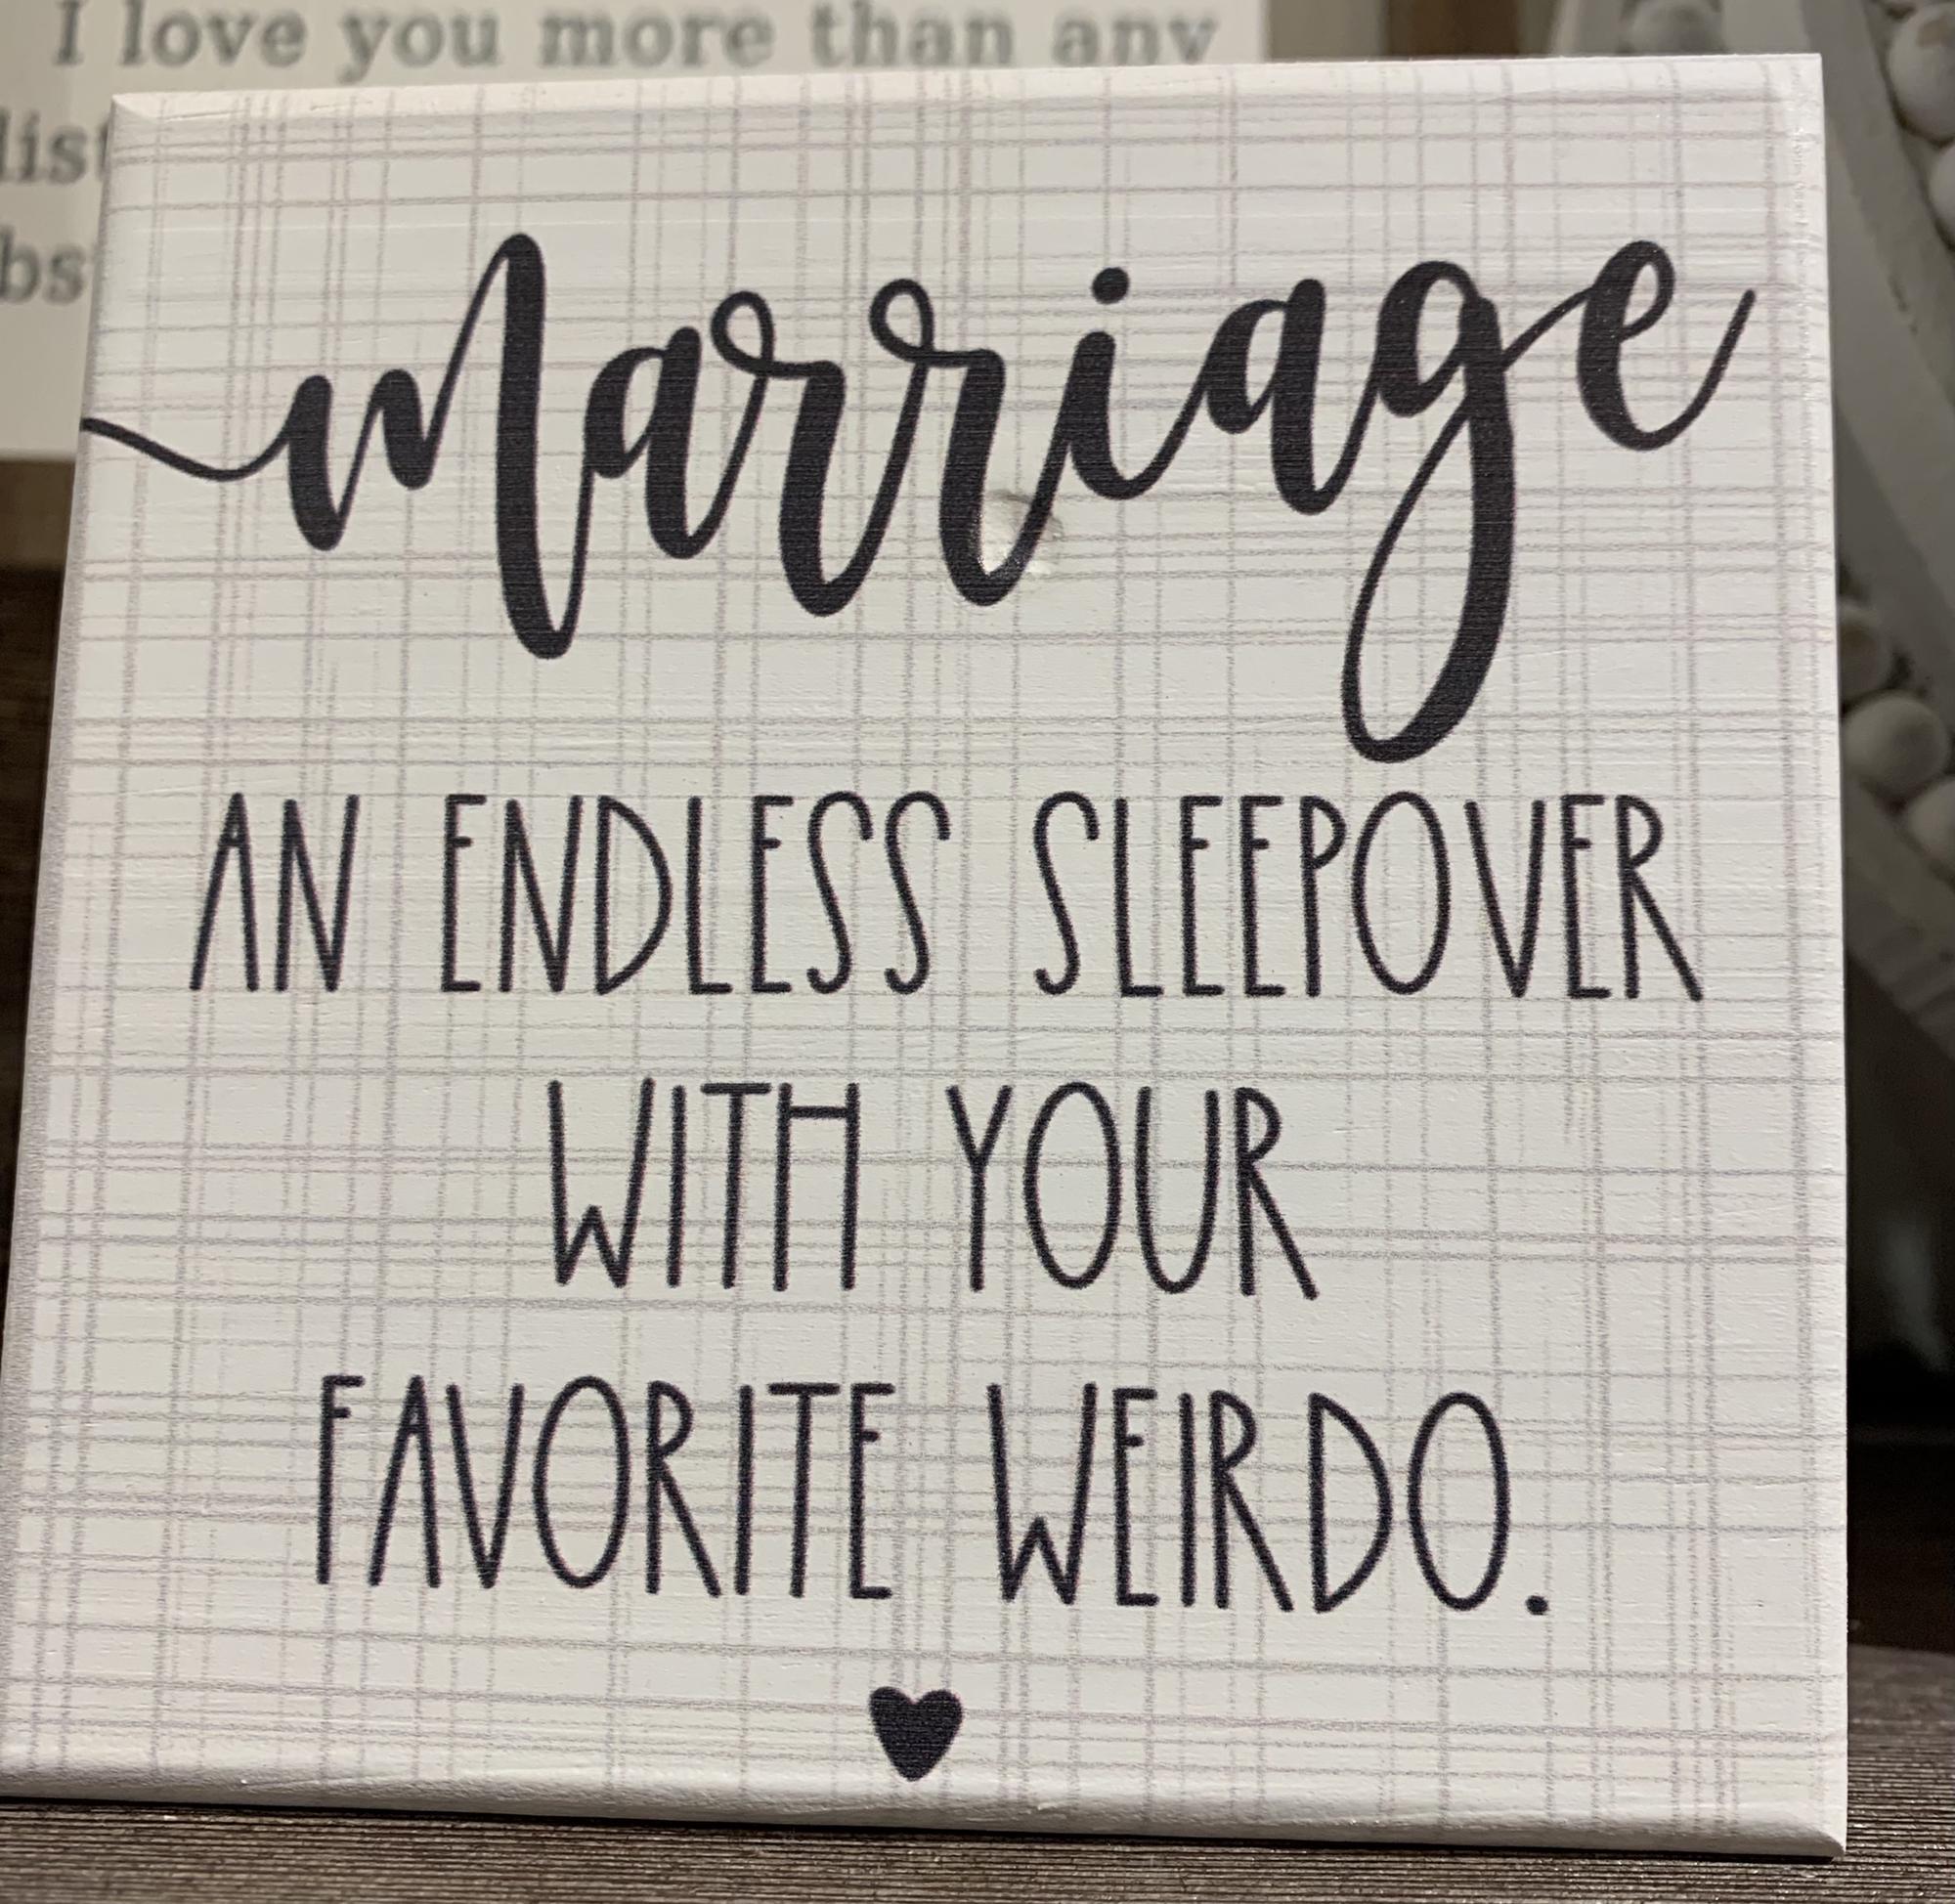 I love you more than any
marriage
AN ENDLESS SLEEPOVER
WITH YOUR
FAVORITE WEIRDO.